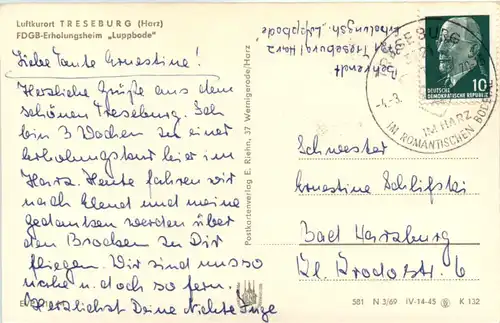 Luftkurort TRESEBURG (Harz)
FDGB-Erholungsheim „Luppbode"
Liebe Tante Ernestine!
Herzliche Grüße aus dem
schönen Treseburg. Ich
bin 3 Wochen zu einer
Erholungskur hier im
Harz. Heute fahren wir
nach Elend und meine
Gedanken werden über
den Brocken zu Dir
fliegen. Wir sind uns so
nahe u. doch so fern.
Herzlichst Deine Nichte Inge
Postkartenverlag E. Riehn, 37 Wernigerode/Harz
Behrendt
Treseburg/Harz
Erholungsh. „Luppbode"
TRESEBURG
-4.-3.
IM HARZ
IM ROMANTISCHEN BODETAL
DEUTSCHE
DEMOKRATISCHE REPUBLIK
10
Schwester
Ernestine Schlifski
Bad Harzburg
Kl. Krodostr. 6
581 N 3/69 IV-14-45 K 132